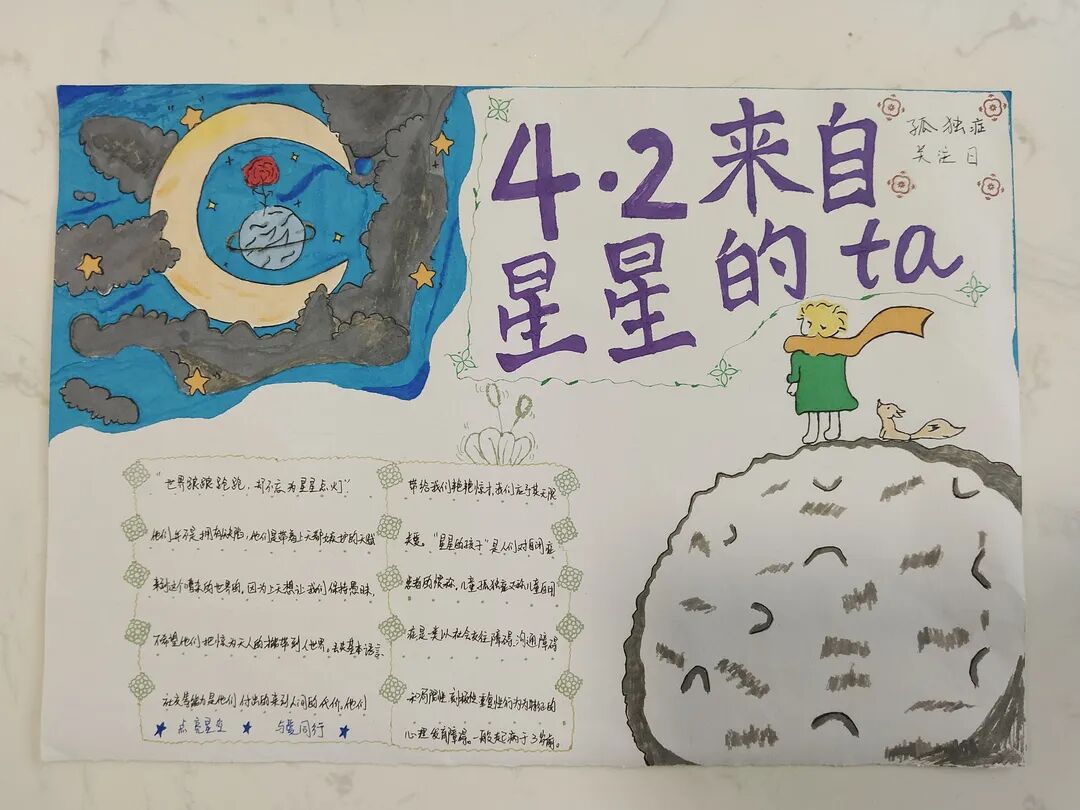 4.2来自
星星的ta
孤独症
关注日
"世界跟跟跑跑,却不忘为星星点灯"
他们并不是拥有缺陷,他们是带着上天都嫉妒的天赋
来到这个嘈杂的世界的,因为上天想让我们保持愚昧,
不希望他们把惊为天人的才带到人世界,丢失基本语言
社交等能力是他们付出的来到人间的代价,他们
点亮星空 与爱同行
带给我们艳艳惊才,我们应予其无限
关爱。"星星的孩子"是人们对自闭症
患者的昵称,儿童孤独症又称儿童自闭
症是一类以社会交往障碍、沟通障碍
和局限性、刻板性、重复性行为为特征的
心理发育障碍。一般起病于3岁前。